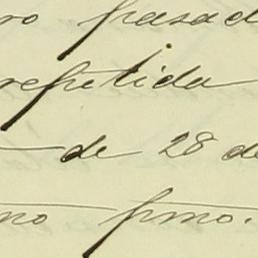 ro pasad
repetida
de 28 de
no pmo.